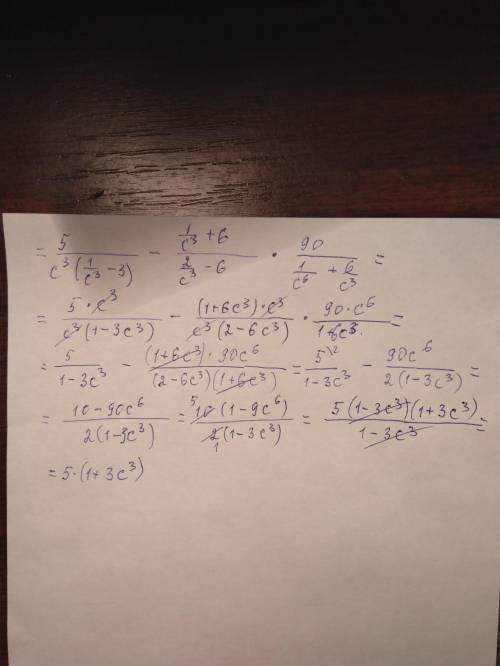 = 5/(c³(1/c³ − 3)) − (1/c³ + 6)/(2/c³ − 6) · 90/(1/c⁶ + 6/c³) =
= (5·c³)/(c³(1−3c³)) − ((1+6c³)·c³)/(c³(2−6c³)) · (90·c⁶)/(1+6c³) =
= 5/(1−3c³) − ((1+6c³)·90c⁶)/((2−6c³)(1+6c³)) = 5\²/(1−3c³) − 90c⁶/(2(1−3c³)) =
= (10−90c⁶)/(2(1−3c³)) = (⁵10·(1−9c⁶))/(2₁(1−3c³)) = (5(1−3c³)(1+3c³))/(1−3c³) =
= 5·(1+3c³)